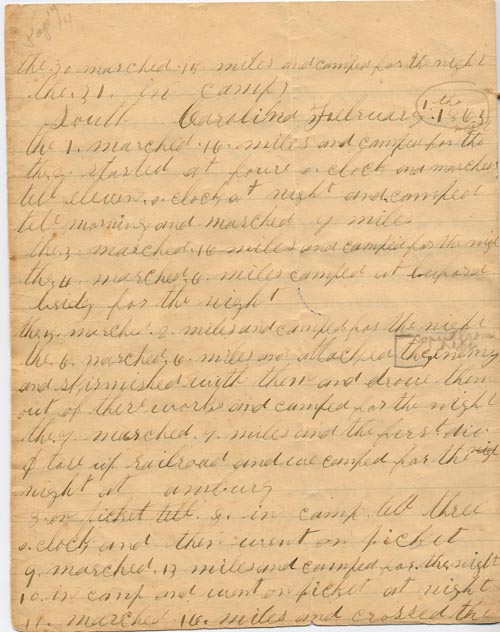 Page 14
the 30 marched 15 miles and camped for the night
the 31. in camp
South Carolina February 1 the 1865
the 1. marched 16. miles and camped for the
the 2. started at foure o. clock and marched
tell eleven. o. clock at night and camped
tell morning and marched 7 miles
the 3. marched 16 miles and camped for the nig
the 4. marched 6. miles camped at buford
bridg for the night
the 5. marched 2. miles and camped for the night
the 6. marched 6. miles and attacked the enemy
and skirmished with them and drove them
out of there works and camped for the night
the 7. marched 7. miles and the first div
tore up railroad and we camped for the
night at amburg
8 on picket tell. 8. in camp tell three
o. clock and then went on picket
9. marched 13 miles and camped for the night
10. in camp and went on picket at night
11. marched 16. miles and crossed the